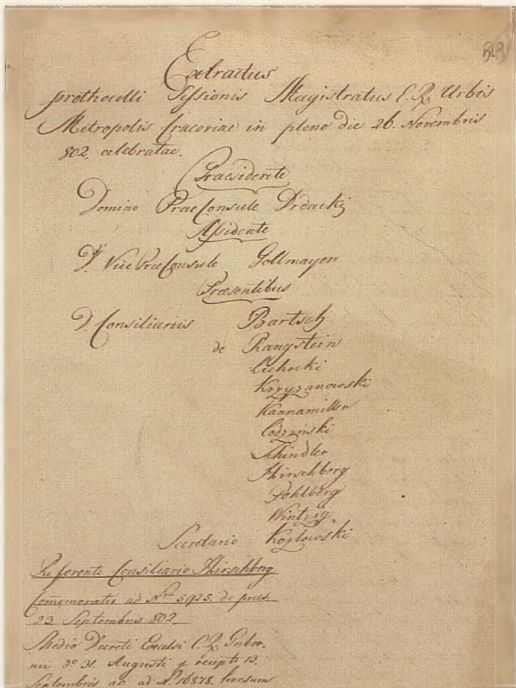 Extractus
prothocolli Sessionis Magistratus C. R. Urbis
Metropolis Cracoviae in pleno die 26. Novembris
802. celebratae.
Praesidente
Domino PraeConsule Drdacki
Assidente
D. Vice PraeConsule Gollmayer
Praesentibus
D. Consiliariis Bartsch
de Rangstein
Lichocki
Krzyżanowski
Hannamiller
Schindler
Hirschberg
Pohlberg
Wintzig
Secretario Kozlowski
Referente Consiliario Hirschberg
Commemoratio ad Nrum 5925. de praes.
23. Septembris 802.
Medio Decreti Excelsi C. R. Guber-
nii dº 31. Augusti
Septembris ac. ad N. 16878. horsum